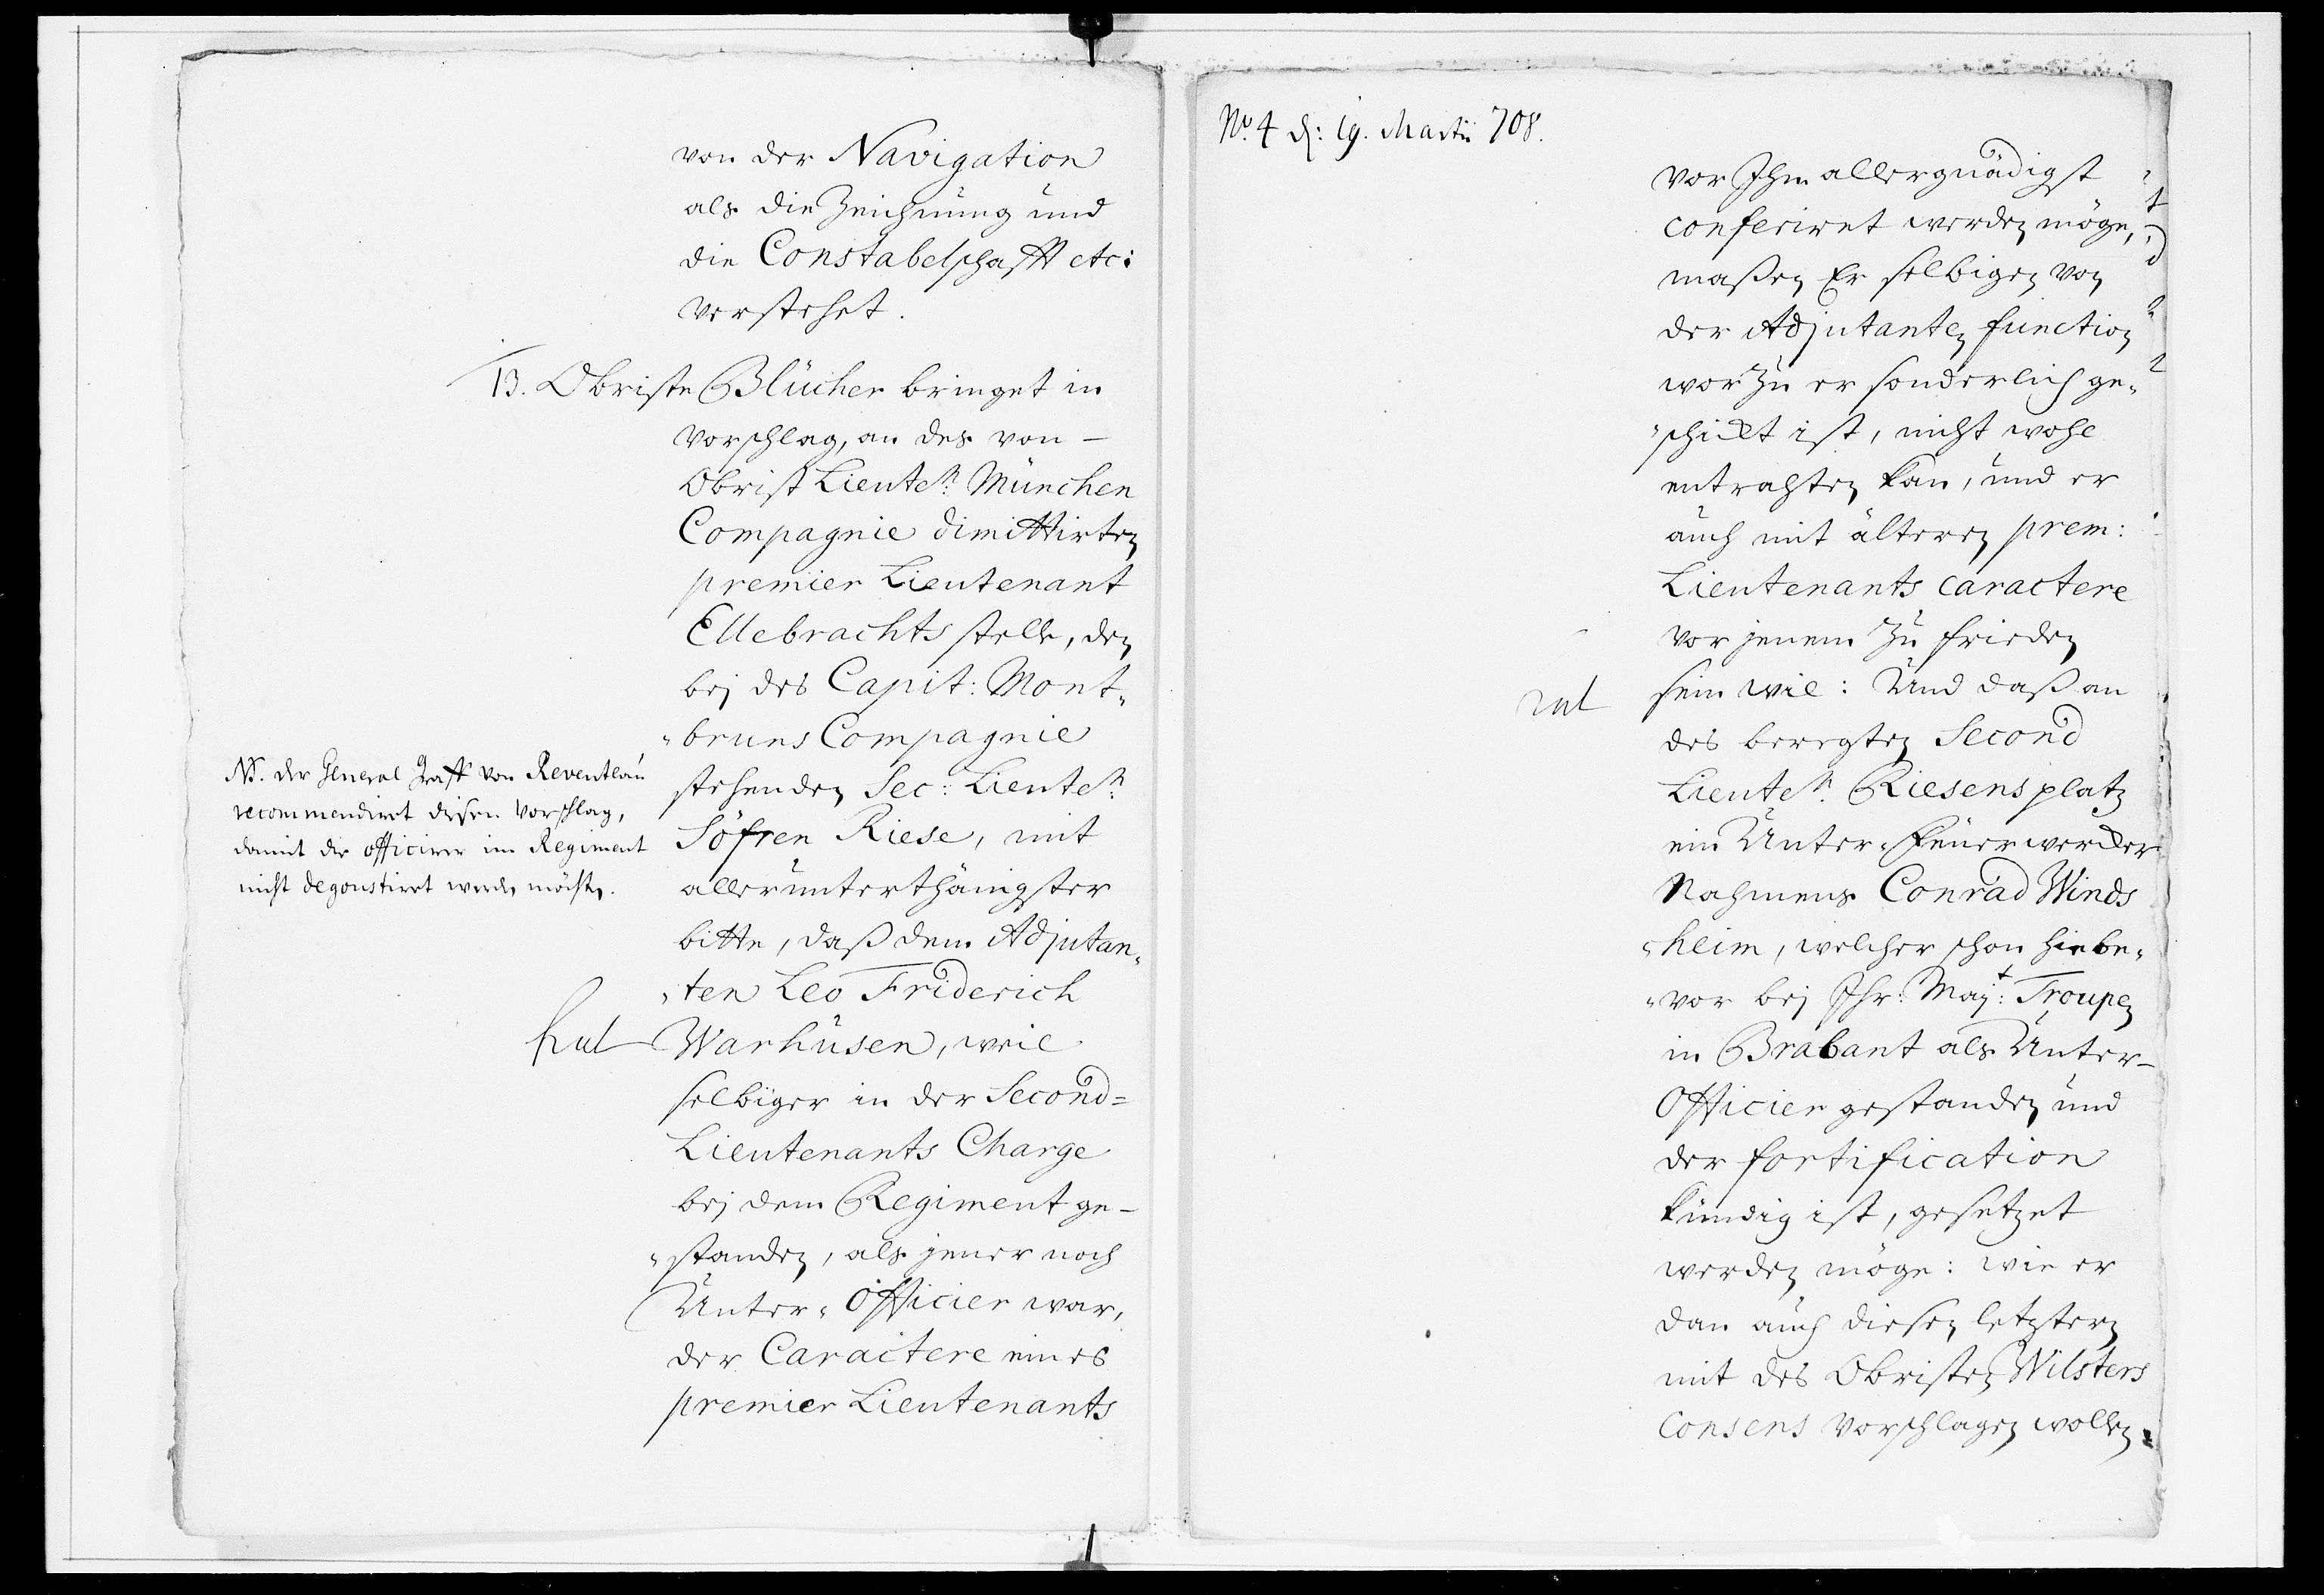 von der Navigation
als die Zeichnung und
die Constabelschafft etc:
verstehet.
13. Obriste Blücher bringet in
Vorschlag, an des von —
Obrist Lieutet: München
Compagnie dimittirten
premier Lieutenant
Ellebrachts stelle, den
bej des Capit: Mont„
„bruns Compagnie
stehenden Sec: Lieutet:
Söfren Riese, mit
allerunterthänigster
bitte, daß dem Adjutan„
„ten Leo Friderich
Warhusen, weil
selbiger in der Second=
Lieutenants Charge
bej dem Regiment ge–
„standen, als jener noch
Unter„ Officier war,
der Caractere eines
premier Lieutenants
NB. der General Graff von Reventlau
recommendiret diesen Vorschlag,
damit die officirer im Regiment
nicht degoustiret werden möchten.
No. 4 d: 19. Martii 708.
vor Ihm allergnädigst
conferiret werden möge,
maßen Er selbigen von
der Adjutanten function
worzu er sonderlich ge„
„schickt ist, nicht wohl
entrahten kan, und er
auch mit älteren prem:
Lieutenants caractere
vor jenem zu frieden
sein wil: Und daß an
des beregten Second
Lieutet: Riesens platz
ein Unter„Feuerwercker
Nahmens Conrad Winds
„heim, welcher schon hiebe„
„vor bej Ihr: Majt: Troupen
in Brabant als Unter–
Officier gestanden und
der fortification
kündig ist, gesetzet
werden möge: wie er
dan auch diesen letztern
mit des Obristen Wilsters
Consens vorschlagen wollen.